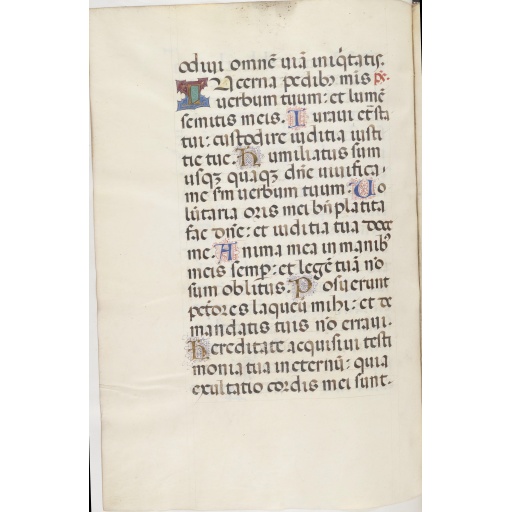 odiui omnē uiā iniq̄tatis.
Lucerna pedibꝰ meis ps.
uerbum tuum: et lumē
semitis meis. Iuraui et sta
tui: custodire iuditia iusti
tie tue. Humiliatus sum
usqꝫ quaqꝫ dn̄e uiuifica
me sm̄ uerbum tuum: Uo
lūtaria oris mei bn̄ placita
fac dn̄e: et iuditia tua doce
me. Anima mea in manibꝰ
meis semp: et legē tuā nō
sum oblitus. Posuerunt
petōres laqueū mihi: et de
mandatis tuis nō erraui.
Hereditate acquisiui testi
monia tua in eternū: quia
exultatio cordis mei sunt.